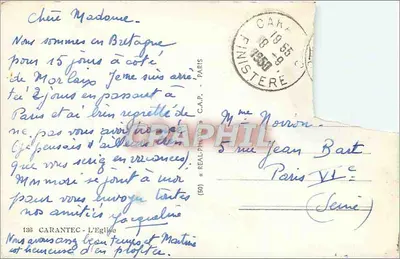 Chère Madame.
Nous sommes en Bretagne
pour 15 jours à côté
de Morlaix Je me suis arrê-
té 2 jours en passant à
Paris et ai bien regretté de
ne pas vous avoir
(je pensais d'ailleurs bien
que vous seriez en vacances).
Mon mari se joint à moi
pour vous envoyer toutes
nos amitiés Jacqueline
136 CARANTEC - L'Eglise
Nous avons assez beau temps et Martine
est heureuse d'en profiter.
(50) « REAL-PHOTO » C.A.P. - PARIS
CARA
19 55
8 -9
1950
FINISTERE
Mme Noiron
5 rue Jean Bart
Paris VIe
(Seine)
DELPHIL